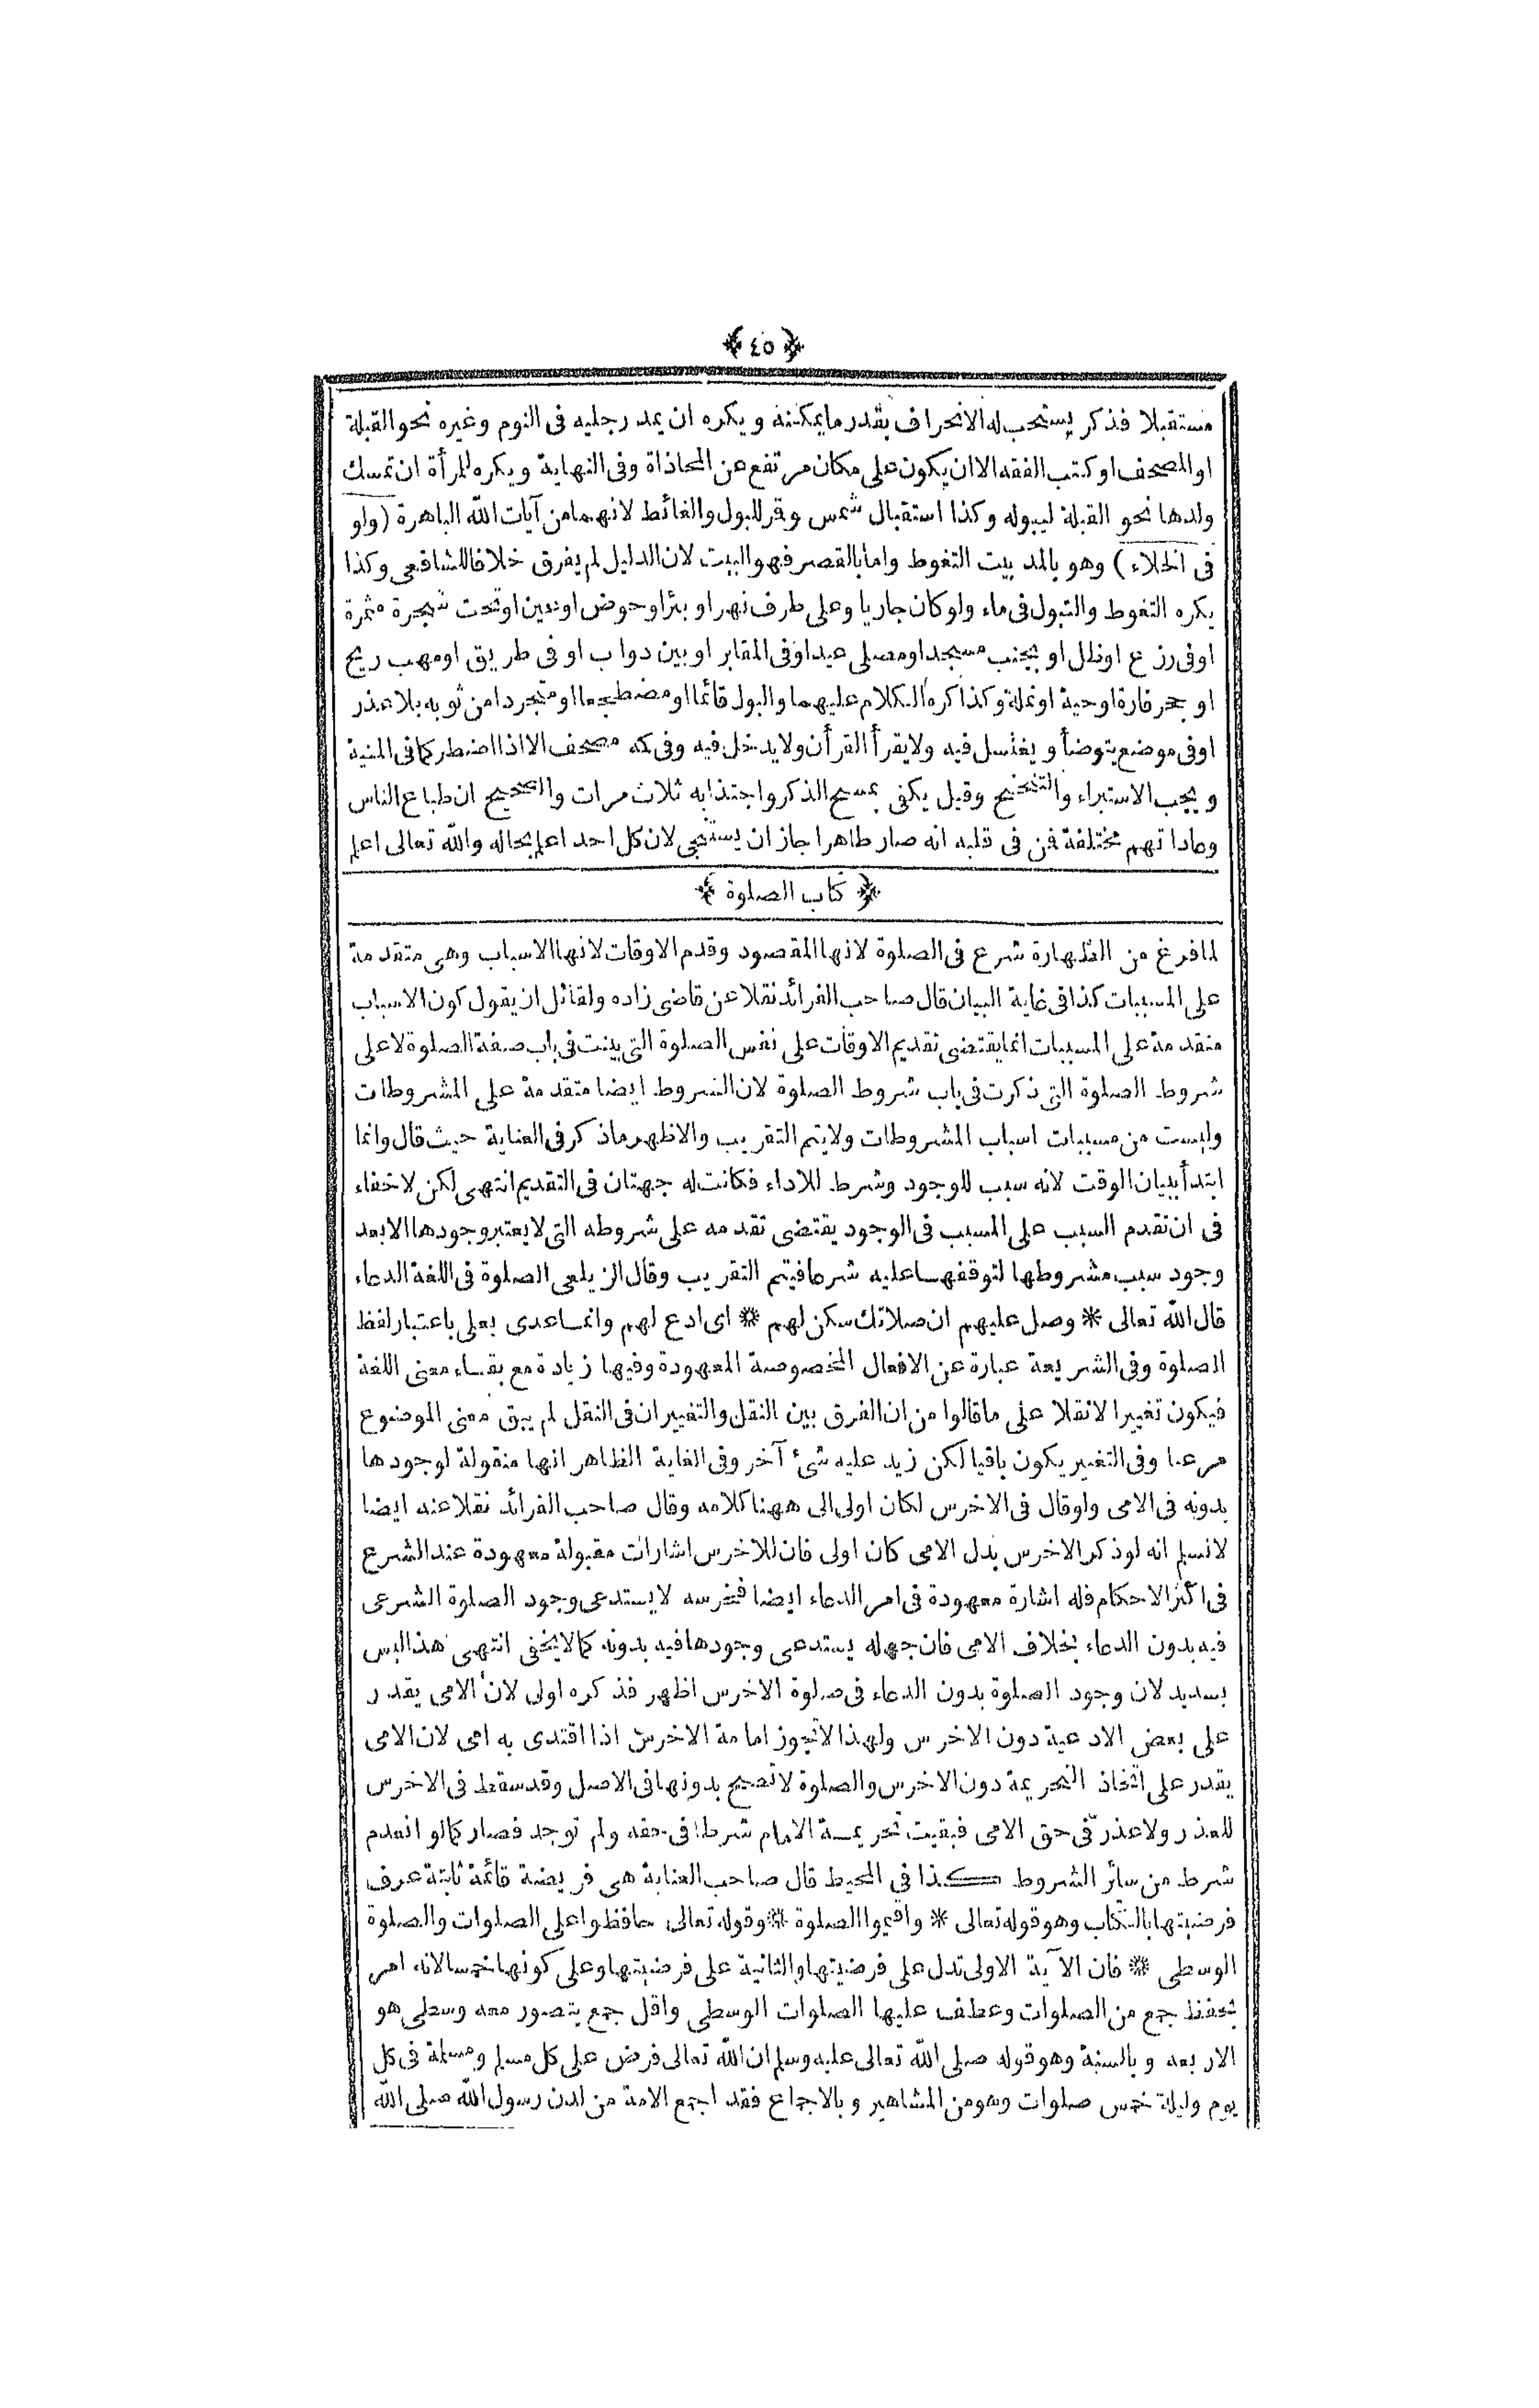 ﴿ ٤٥ ﴾
مستقبلا فذكر يستحب له الانحراف بقدر ما يمكنه ويكره ان يمد رجليه فى النوم وغيره نحو القبلة
او المصحف او كتب الفقه الا ان يكون على مكان مرتفع عن المحاذاة وفى النهاية ويكره للمرأة ان تمسك
ولدها نحو القبلة ليبوله وكذا استقبال شمس وقمر للبول والغائط لانهما من آيات الله الباهرة (ولو
فى الخلاء) وهو بالمد بيت التغوط واما بالقصر فهو البيت لان الدليل لم يفرق خلافا للشافعى وكذا
يكره التغوط والتبول فى ماء ولو كان جاريا وعلى طرف نهر او بئر او حوض او عين او تحت شجرة مثمرة
او فى زرع او ظل او بجنب مسجد او مصلى عيد او فى المقابر او بين دواب او فى طريق او مهب ريح
او جحر فارة او حية او نملة وكذا كره الكلام عليهما والبول قائما او مضطجعا او متجردا من ثوبه بلا عذر
او فى موضع يتوضأ ويغتسل فيه ولا يقرأ القرأن ولا يدخل فيه وفى كمه مصحف الا اذا اضطر كما فى المنية
ويجب الاستبراء والتنحنح وقيل يكفى بمسح الذكر واجتذابه ثلاث مرات والصحيح ان طباع الناس
وعاداتهم مختلفة فمن فى قلبه انه صار طاهرا جاز ان يستنجى لان كل احد اعلم بحاله والله تعالى اعلم
﴿ كتاب الصلوة ﴾
لما فرغ من الطهارة شرع فى الصلوة لانها المقصود وقدم الاوقات لانها الاسباب وهى متقدمة
على المسببات كذا فى غاية البيان قال صاحب الفرائد نقلا عن قاضى زاده ولقائل ان يقول كون الاسباب
متقدمة على المسببات انما يقتضى تقديم الاوقات على نفس الصلوة التى بينت فى باب صفة الصلوة لا على
شروط الصلوة التى ذكرت فى باب شروط الصلوة لان الشروط ايضا متقدمة على المشروطات
وليست من مسببات اسباب المشروطات ولا يتم التقريب والاظهر ما ذكر فى العناية حيث قال وانما
ابتدأ ببيان الوقت لانه سبب للوجود وشرط للاداء فكانت له جهتان فى التقديم انتهى لكن لا خفاء
فى ان تقدم السبب على المسبب فى الوجود يقتضى تقدمه على شروطه التى لا يعتبر وجودها الا بعد
وجود سبب مشروطها لتوقفها عليه شرعا فيتم التقريب وقال الزيلعى الصلوة فى اللغة الدعاء
قال الله تعالى * وصل عليهم ان صلاتك سكن لهم * اى ادع لهم وانما عدى بعلى باعتبار لفظ
الصلوة وفى الشريعة عبارة عن الافعال المخصوصة المعهودة وفيها زيادة مع بقاء معنى اللغة
فيكون تغييرا لا نقلا على ما قالوا من ان الفرق بين النقل والتغيير ان فى النقل لم يبق معنى الموضوع
مرعيا وفى التغيير يكون باقيا لكن زيد عليه شئ آخر وفى الغاية الظاهر انها منقولة لوجودها
بدونه فى الامى ولو قال فى الاخرس لكان اولى الى ههنا كلامه وقال صاحب الفرائد نقلا عنه ايضا
لا نسلم انه لو ذكر الاخرس بدل الامى كان اولى فان للاخرس اشارات مقبولة معهودة عند الشرع
فى اكثر الاحكام فله اشارة معهودة فى امر الدعاء ايضا فخرسه لا يستدعى وجود الصلوة الشرعى
فيه بدون الدعاء بخلاف الامى فان جهله يستدعى وجودها فيه بدونه كما لا يخفى انتهى هذا ليس
بسديد لان وجود الصلوة بدون الدعاء فى صلوة الاخرس اظهر فذكره اولى لان الامى يقدر
على بعض الادعية دون الاخرس ولهذا لا تجوز امامة الاخرس اذا اقتدى به امى لان الامى
يقدر على اتخاذ التحريمة دون الاخرس والصلوة لا تصح بدونها فى الاصل وقد سقط فى الاخرس
للعذر ولا عذر فى حق الامى فبقيت تحريمة الامام شرطا فى حقه ولم توجد فصار كما لو انعدم
شرط من سائر الشروط كذا فى المحيط قال صاحب العناية هى فريضة قائمة ثابتة عرف
فرضيتها بالكتاب وهو قوله تعالى * واقيموا الصلوة * وقوله تعالى حافظوا على الصلوات والصلوة
الوسطى * فان الآية الاولى تدل على فرضيتها والثانية على فرضيتها وعلى كونها خمسا لانه امر
بحفظ جمع من الصلوات وعطف عليها الصلوات الوسطى واقل جمع يتصور معه وسطى هو
الاربعه وبالسنة وهو قوله صلى الله تعالى عليه وسلم ان الله تعالى فرض على كل مسلم ومسلمة فى كل
يوم وليلة خمس صلوات وهو من المشاهير وبالاجماع فقد اجمع الامة من لدن رسول الله صلى الله